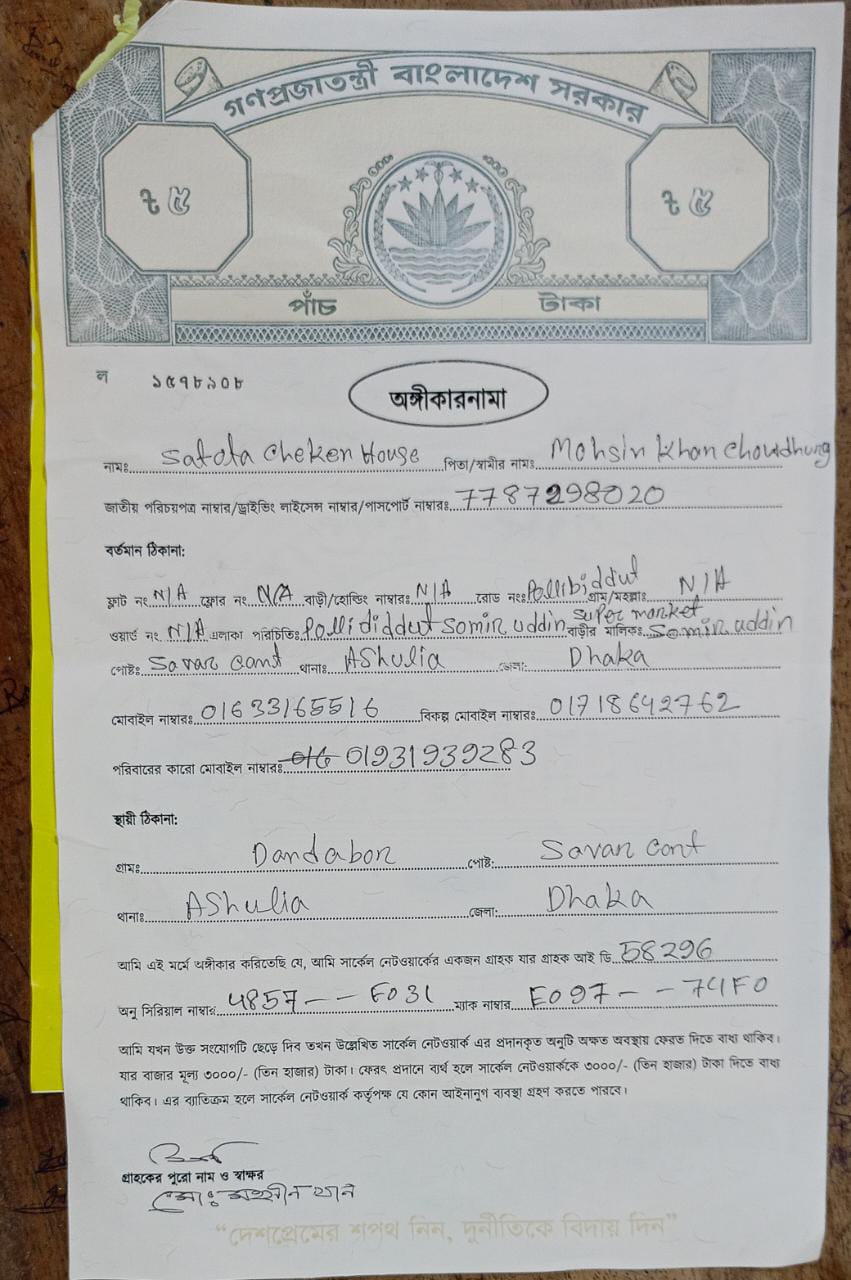 গণপ্রজাতন্ত্রী বাংলাদেশ সরকার
৳ ৫ ৳ ৫
পাঁচ টাকা
ল ১৫৭৮৯০৮
অঙ্গীকারনামা
নামঃ Satota Cheken House পিতা/স্বামীর নামঃ Mohsin Khan Chowdhung
জাতীয় পরিচয়পত্র নাম্বার/ড্রাইভিং লাইসেন্স নাম্বার/পাসপোর্ট নাম্বারঃ 7787298020
বর্তমান ঠিকানা:
ফ্লাট নং N/A ফ্লোর নং N/A বাড়ী/হোল্ডিং নাম্বারঃ N/A রোড নংঃ Pollibiddut গ্রাম/মহল্লাঃ N/A
ওয়ার্ড নং N/A এলাকা পরিচিতিঃ Polli diddut Somir uddin super market বাড়ীর মালিকঃ Somir uddin
পোষ্টঃ Savar Cant থানাঃ AShulia জেলা: Dhaka
মোবাইল নাম্বারঃ 01633165516 বিকল্প মোবাইল নাম্বারঃ 01718642762
পরিবারের কারো মোবাইল নাম্বারঃ 016 01931939283
স্থায়ী ঠিকানা:
গ্রামঃ Dandabor পোষ্ট: Savar Cant
থানাঃ AShulia জেলা: Dhaka
আমি এই মর্মে অঙ্গীকার করিতেছি যে, আমি সার্কেল নেটওয়ার্কের একজন গ্রাহক যার গ্রাহক আই ডি 58296
অনু সিরিয়াল নাম্বার 4857--F031 ম্যাক নাম্বার E097--74F0
আমি যখন উক্ত সংযোগটি ছেড়ে দিব তখন উল্লেখিত সার্কেল নেটওয়ার্ক এর প্রদানকৃত অনুটি অক্ষত অবস্থায় ফেরত দিতে বাধ্য থাকিব।
যার বাজার মূল্য ৩০০০/- (তিন হাজার) টাকা। ফেরৎ প্রদানে ব্যর্থ হলে সার্কেল নেটওয়ার্ককে ৩০০০/- (তিন হাজার) টাকা দিতে বাধ্য
থাকিব। এর ব্যতিক্রম হলে সার্কেল নেটওয়ার্ক কর্তৃপক্ষ যে কোন আইনানুগ ব্যবস্থা গ্রহণ করতে পারবে।
গ্রাহকের পুরো নাম ও স্বাক্ষর
মোঃ মহসীন খান
“দেশপ্রেমের শপথ নিন, দুর্নীতিকে বিদায় দিন”